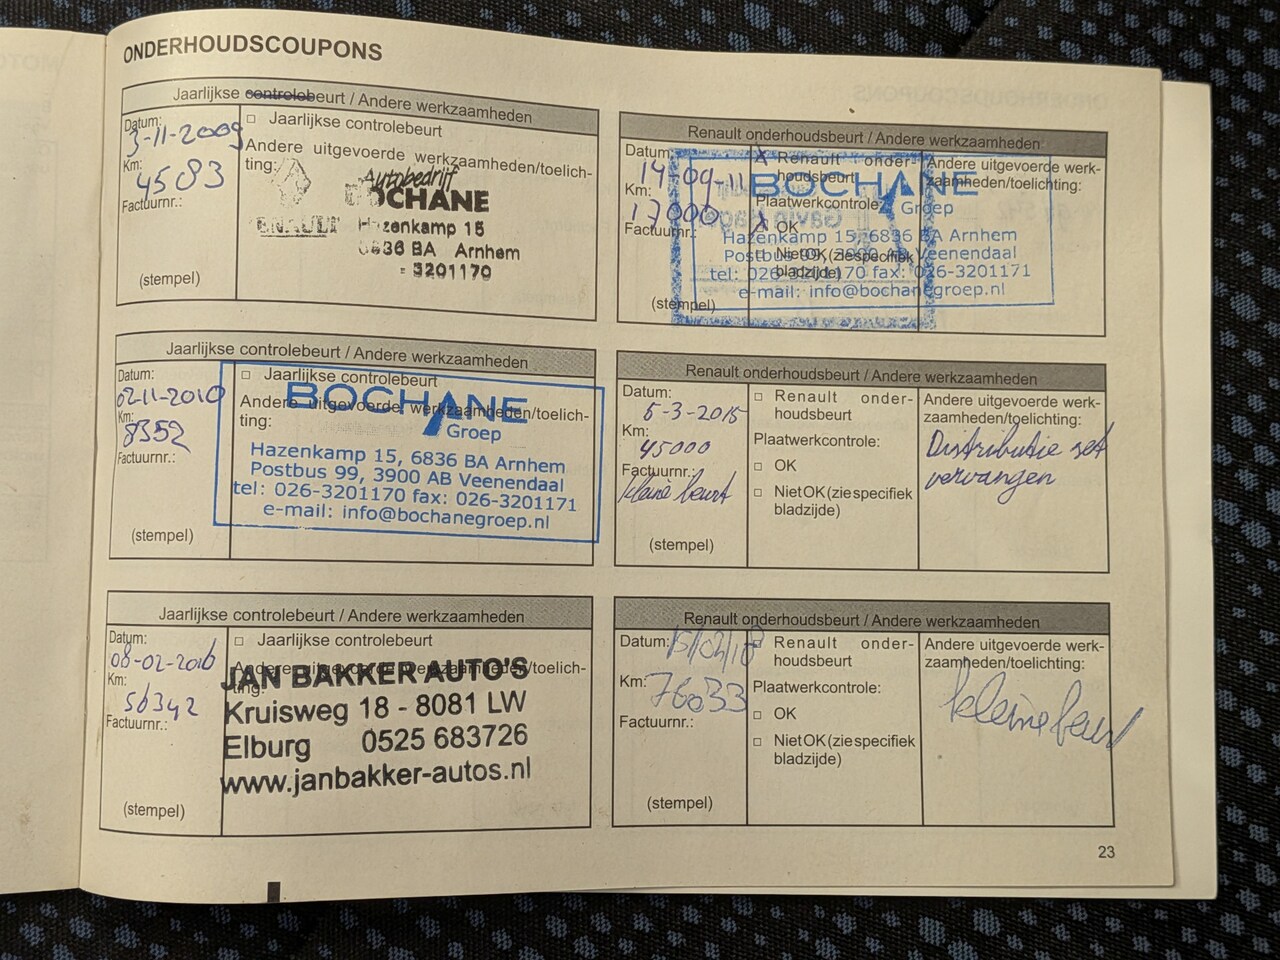 ONDERHOUDSCOUPONS
Jaarlijkse controlebeurt / Andere werkzaamheden
Datum:
3-11-2009
Km:
4583
Factuurnr.:
(stempel)
□ Jaarlijkse controlebeurt
Andere uitgevoerde werkzaamheden/toelich-
ting:
RENAULT
Autobedrijf
BOCHANE
Hazenkamp 15
6836 BA Arnhem
- 3201170
Renault onderhoudsbeurt / Andere werkzaamheden
Datum:
14-09-11
Km:
17000
Factuurnr.:
(stempel)
Renault onder-
houdsbeurt
Plaatwerkcontrole:
OK
Niet OK (zie specifiek
bladzijde)
Andere uitgevoerde werk-
zaamheden/toelichting:
BOCHANE
Groep
Hazenkamp 15, 6836 BA Arnhem
Postbus 99, 3900 AB Veenendaal
tel: 026-3201170 fax: 026-3201171
e-mail: info@bochanegroep.nl
Jaarlijkse controlebeurt / Andere werkzaamheden
Datum:
02-11-2010
Km:
8352
Factuurnr.:
(stempel)
□ Jaarlijkse controlebeurt
Andere uitgevoerde werkzaamheden/toelich-
ting:
BOCHANE
Groep
Hazenkamp 15, 6836 BA Arnhem
Postbus 99, 3900 AB Veenendaal
tel: 026-3201170 fax: 026-3201171
e-mail: info@bochanegroep.nl
Renault onderhoudsbeurt / Andere werkzaamheden
Datum:
5-3-2015
Km:
45000
Factuurnr.:
kleine beurt
(stempel)
□ Renault onder-
houdsbeurt
Plaatwerkcontrole:
□ OK
□ Niet OK (zie specifiek
bladzijde)
Andere uitgevoerde werk-
zaamheden/toelichting:
Distributie set
vervangen
Jaarlijkse controlebeurt / Andere werkzaamheden
Datum:
08-02-2016
Km:
56342
Factuurnr.:
(stempel)
□ Jaarlijkse controlebeurt
Andere uitgevoerde werkzaamheden/toelich-
ting:
JAN BAKKER AUTO'S
Kruisweg 18 - 8081 LW
Elburg 0525 683726
www.janbakker-autos.nl
Renault onderhoudsbeurt / Andere werkzaamheden
Datum: 15/02/18
Km: 76033
Factuurnr.:
(stempel)
□ Renault onder-
houdsbeurt
Plaatwerkcontrole:
□ OK
□ Niet OK (zie specifiek
bladzijde)
Andere uitgevoerde werk-
zaamheden/toelichting:
kleine beurt
23